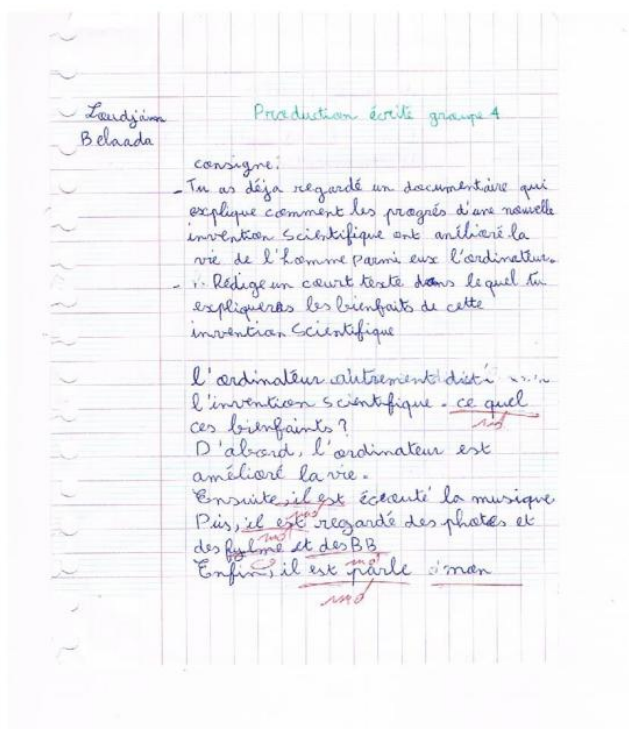 Production écrite groupe 4
Belaada
consigne:
- Tu as déja regardé un documentaire qui
explique comment les progrés d'une nouvelle
invention scientifique ont amélioré la
vie de l'homme parmi eux l'ordinateur.
- Rédige un court texte dans lequel tu
expliqueras les bienfaits de cette
invention scientifique
l'ordinateur autrement dict
l'invention scientifique. ce quel
ces bienfaints ?
D'abord, l'ordinateur est
amélioré la vie.
Ensuite, il est éccouté la musique
Puis, il est regardé des photos et
des fylme et des BB
Enfin, il est parle